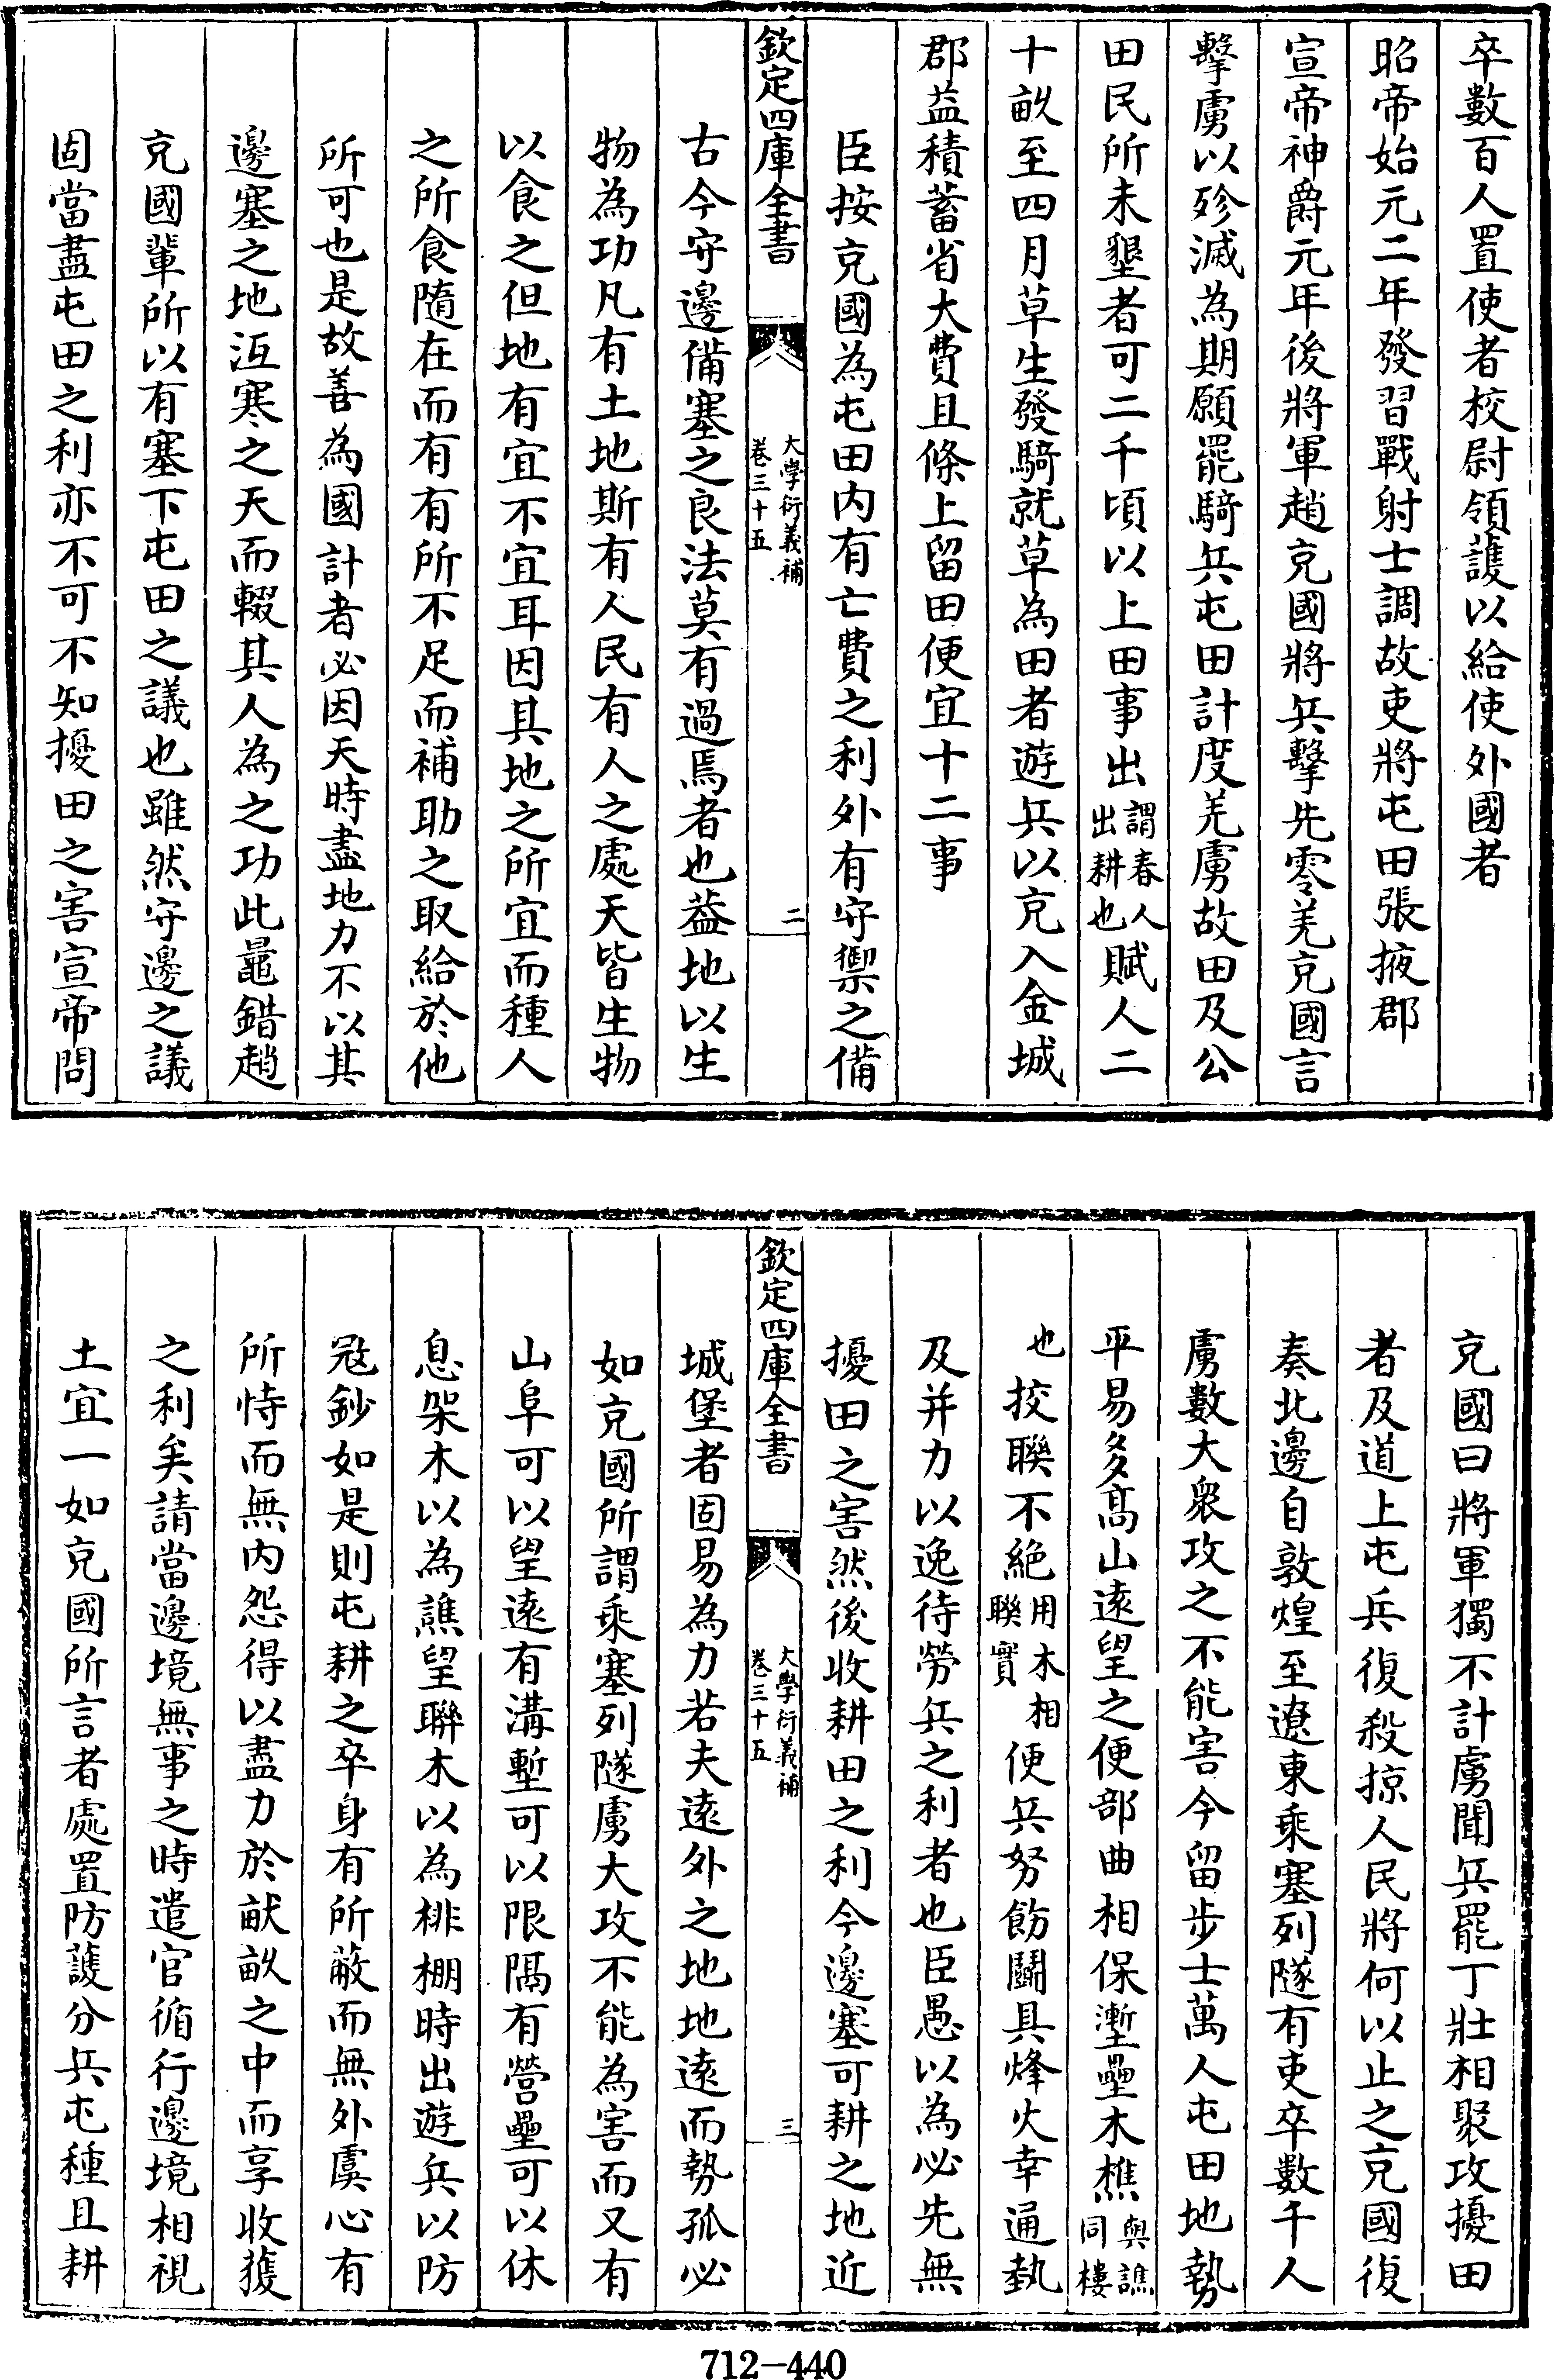 卒數百人置使者校尉領護以給使外國者
昭帝始元二年發習戰射士調故吏將屯田張掖郡
宣帝神爵元年後將軍趙充國將兵擊先零羌充國言
擊虜以殄滅為期願罷騎兵屯田計度羌虜故田及公
田民所未墾者可二千頃以上田事出謂春人出耕也賦人二
十畝至四月草生發騎就草為田者遊兵以充入金城
郡益積蓄省大費且條上留田便宜十二事
臣按充國為屯田内有亡費之利外有守禦之備
欽定四庫全書 大學衍義補 卷三十五 二
古今守邊備塞之良法莫有過焉者也蓋地以生
物為功凡有土地斯有人民有人之處天皆生物
以食之但地有宜不宜耳因其地之所宜而種人
之所食隨在而有有所不足而補助之取給於他
所可也是故善為國計者必因天時盡地力不以其
邊塞之地沍寒之天而輟其人為之功此鼂錯趙
充國輩所以有塞下屯田之議也雖然守邊之議
固當盡屯田之利亦不可不知擾田之害宣帝問
充國曰將軍獨不計虜聞兵罷丁壯相聚攻擾田
者及道上屯兵復殺掠人民將何以止之充國復
奏北邊自敦煌至遼東乘塞列隧有吏卒數千人
虜數大衆攻之不能害今留步士萬人屯田地勢
平易多高山遠望之便部曲相保塹壘木樵與譙同樓
也挍聯不絶用木相聨實便兵弩飭鬭具烽火幸通埶
及并力以逸待勞兵之利者也臣愚以為必先無
擾田之害然後收耕田之利今邊塞可耕之地近
欽定四庫全書 大學衍義補 卷三十五 三
城堡者固易為力若夫遠外之地地遠而勢孤必
如充國所謂乘塞列隧虜大攻不能為害而又有
山阜可以望遠有溝塹可以限隔有營壘可以休
息架木以為譙望聨木以為棑棚時出遊兵以防
宼鈔如是則屯耕之卒身有所蔽而無外虞心有
所恃而無内怨得以盡力於畎畝之中而享收穫
之利矣請當邊境無事之時遣官循行邊境相視
土宜一如充國所言者處置防護分兵屯種且耕
712-440